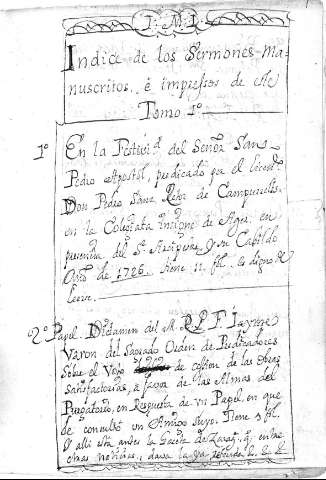 J. M. J.
Indice de los Sermones Ma=
nuscritos, è impressos de este
Tomo 1º
1º En la Festivid. del Señor San
Pedro Apostol, predicado por el Licend.
Don Pedro Sanz Retor de Campurrells
en la Colegiata insigne de Ager, en
presencia del Sr. Arcipreste, y su Cabildo
Año de 1726. tiene 11 fol. es digno de
leerse.
2º Papel Dictamen del M. R. P. F. Jayme
Varon del Sagrado Orden de Predicadores
Sobre el Voto de cession de las Obras
Satisfactorias, a favor de las Almas del
Purgatorio, en Respuesta de un Papel, en que
se consultò un Amigo Suyo. Tiene fol.
Y alli està antes la Gazeta de Zarag. q. entre
otras noticias, dava la